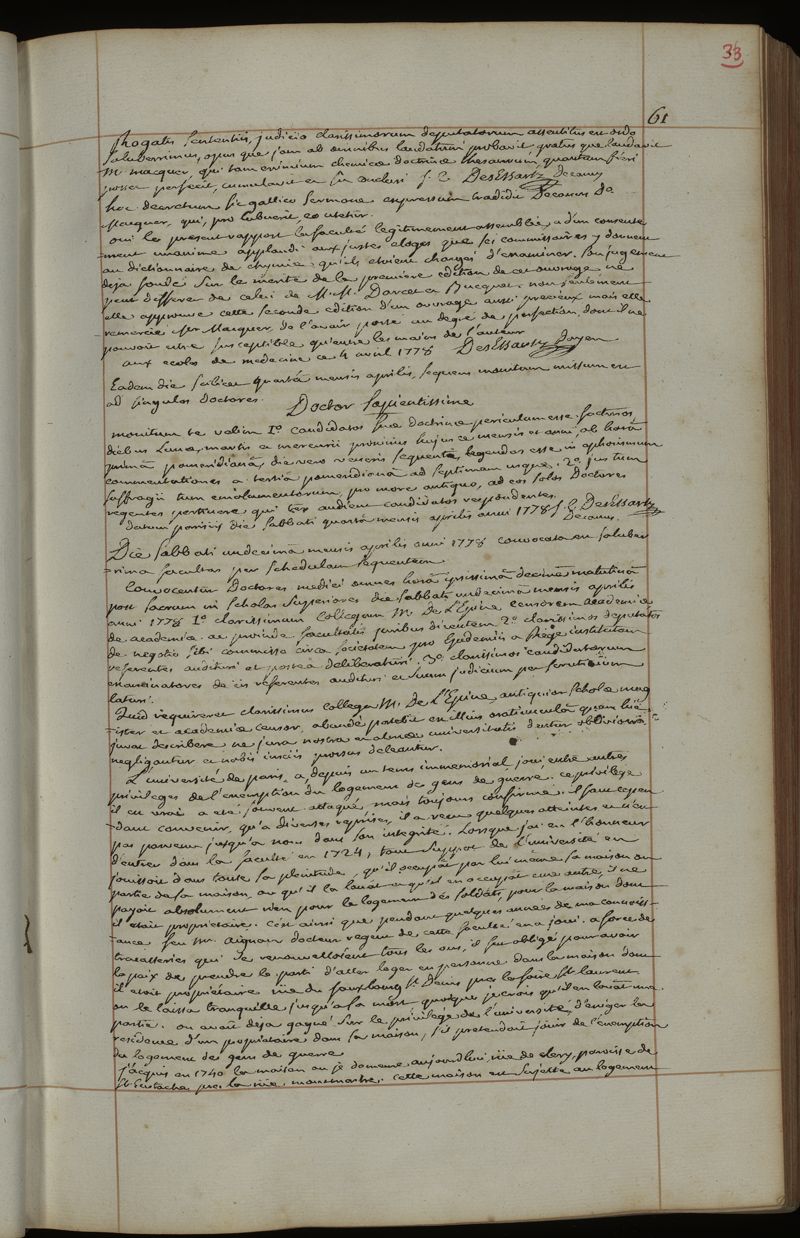 33
61
Rogatis sententiis, judicio clarissimorum deputatorum assentitus est ordo
saluberrimus, opus que jam ab omnibus laudatum probavit, gratus que laudavit
M. Macquer, qui tam eximium chemicae doctrinae thesaurum, quantum fieri
posset perfecit, cumulavit et sic conclusi J. C. DesEssartz Decanus
hoc decretum sic gallico sermone expressum tradidit Decanus D.
Macquer, qui, pro lubuerit, eo utetur.
oui le present rapport la faculté legitimement assemblée a d'un consente
-ment unanime applaudi aux justes eloges que ses commissaires y donnent
au dictionnaire de chymie qu'ils etoient chargés d'examiner. Son jugement
deja fondé sur le merite de la premiere edition de cet ouvrage ne
peut differer de celui de M.M. Darcet et Bucquet. non seulement
elle approuve cette seconde edition d'un ouvrage aussi precieux mais elle
remercie Mr Macquer de l'avoir porté au degré de perfection dont il ne
pouvoit etre susceptible qu'entre les mains de l'auteur
aux ecoles de medecine ce 4 avril 1778 DesEssartz Doyen
Eadem die scilicet quartâ mensis aprilis, sequens monitum missum est
ad singulos doctores.
Doctor Sapientissime
monitum te velim 1o candidatos suae doctrinae periculum esse facturos
diebus Lunae, martis et mercurii proximis hujusce mensis et anni, ab horâ
primâ pomeridianâ, die vero veneris sequente, legendas esse in aphorismum
commentationes a tertiâ pomeridianâ ad septimam usque, 2o jus tum
suffragii tum emolumentorum, pro more antiquo, ad eos solos Doctores
regentes pertinere qui ter audient candidatos respondentes.
datum parisiis die sabbati quartâ mensis aprilis anni 1778 J. C. DesEssartz
Decanus.
Die sabbati undecimâ mensis aprilis anni 1778 convocata est saluber
-rima facultas per schedulam sequentem
Convocentur Doctores medici omnes horâ ipsissimâ decimâ matutinâ
post sacrum in scholas superiores die sabbati undecimâ mensis aprilis
anni 1778 1o clarissimum collegam M. De L'Epine censorem academiae
de academiae ac proinde facultatis juribus dicentem 2o clarissimos deputatos
de negotio sibi commisso circa societatem pro Epidemiis a Rege institutam
referentes audituri et postea deliberaturi. 3o clarissimos candidatorum
examinatores de iis referentes audituri et suum judicium per scrutinium
laturi.
Quid requireret clarissimus collega M. De L'Epine, antiquior scholae mag
-ister et academiae censor, abunde patebit ex illius oratiunculâ quam hic
juvat describere ne jura nostra et almae universitatis dentur oblivioni
negligantur et nobis insciis prorsus deleantur.
L'université de paris, a depuis un tems immemorial joui, entre autres
privileges de l'exemption du logement de gens de guerre. ce privilege
il est vrai a eté souvent attaqué mais toujours confirmé. il faut cepen
-dant convenir, qu'a diverses reprises, il a reçu quelques atteintes et n'est
pas parvenu jusqu'a nous dans son integrité. Lorsque j'ai eu l'honneur
d'entrer dans la faculté en 1724, tout suppot de l'université en
jouissoit dans toute sa plenitude, qu'il occupât par lui même sa maison ou
partie de sa maison, ou qu'il la louât et qu'il en occupât une autre, il ne
payoit absolument rien pour le logement des soldats, pour la maison dont
il etoit propriétaire. c'est ainsi que pendant quelques années de ma connoiss-
-ance feu Mr. Aignan docteur regent de cette faculté en a joui. a force de
tracasseries qui se renouvelloient tous les ans, il fut obligé pour avoir
la paix de prendre le parti d'aller loger en personne dans la maison dont
il etoit proprietaire rue du fauxbourg St. Denis près la foire St. laurent
on le laissa tranquille jusqu'a sa mort quoique je crois qu'il en louât une
partie. on avoit deja gagné sur le privilege de l'université, d'exiger la
residence d'un proprietaire dans sa maison, s'il pretendoit jouir de l'exemption
du logement de gens de guerre
j'acquis en 1740 la maison ou je demeure aujourdhui rue de clery, paroisse de
St. Eustache près la rue montmartre. cette maison est sujette au logement